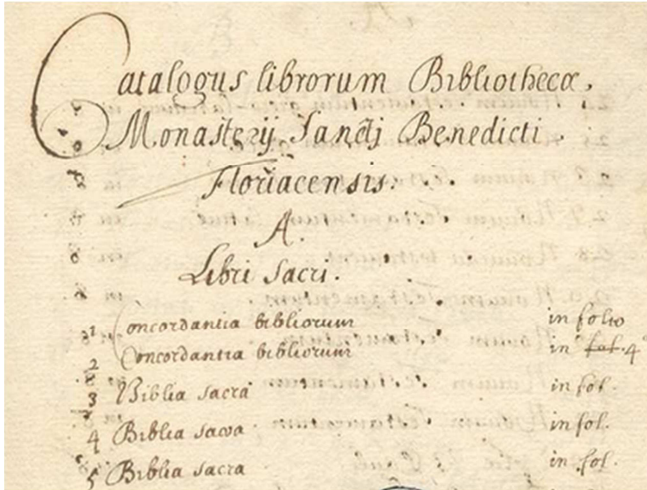 Catalogus librorum Bibliothecæ,
Monasterij Sancti Benedicti.
Floriacensis.
A.
Libri Sacri.
1 Concordantia bibliorum in folio
2 Concordantia bibliorum in fol. 4°
3 Biblia sacra in fol.
4 Biblia sacra in fol.
5 Biblia sacra in fol.